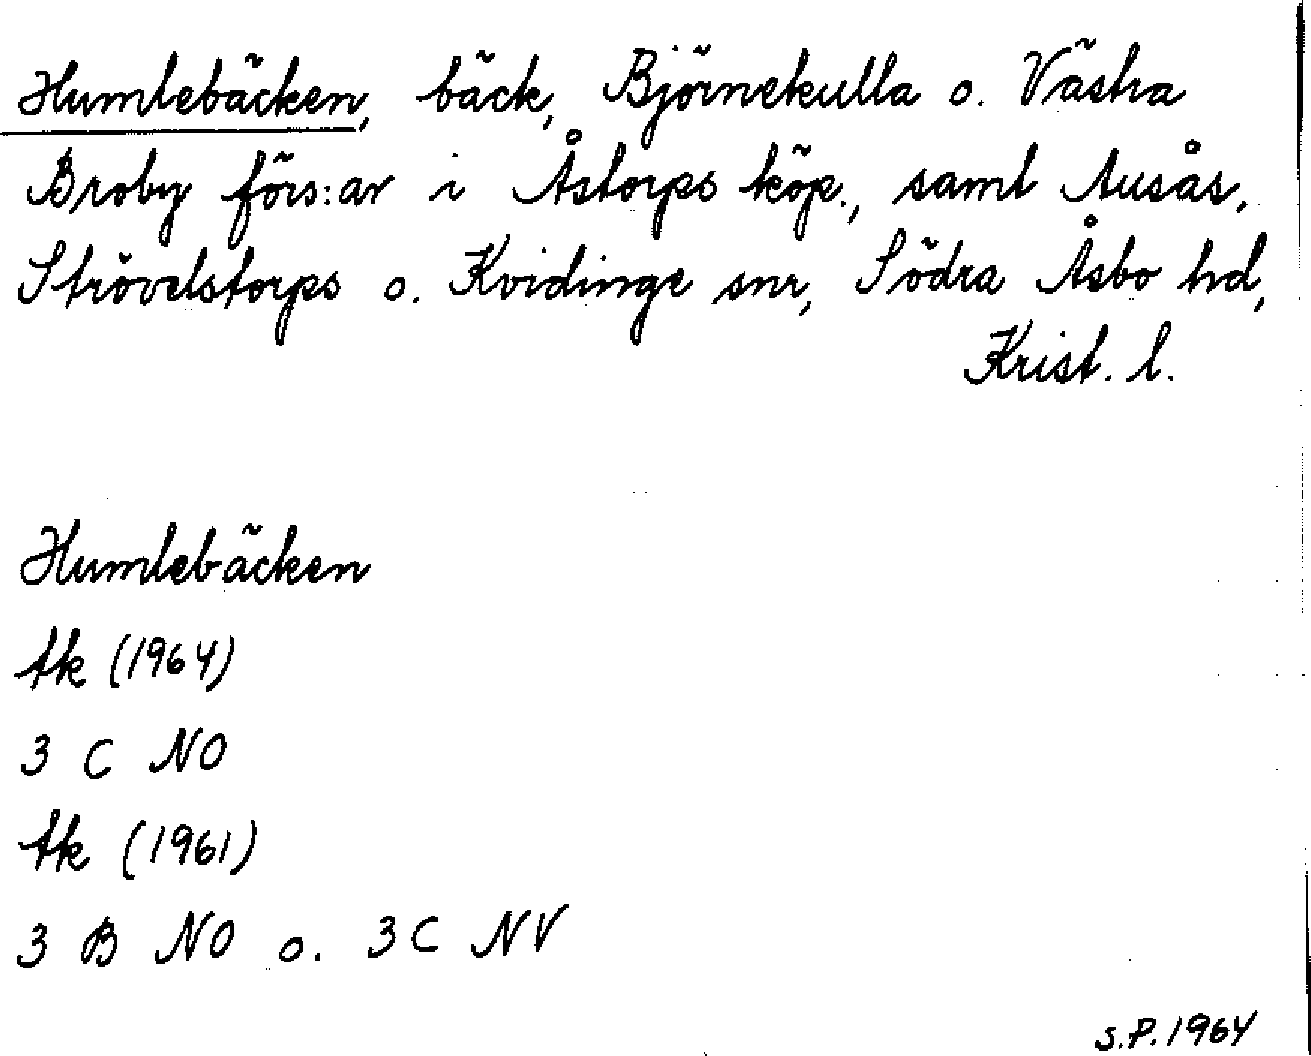 Humlebäcken, bäck, Björnekulla o. Västra
Broby förs:ar i Åstorps köp., samt Ausås,
Strövelstorps o. Kvidinge snr, Södra Åsbo hd,
Krist. l.
Humlebäcken
tk (1964)
3 C NO
tk (1961)
3 B NO o. 3 C NV
S.P. 1964